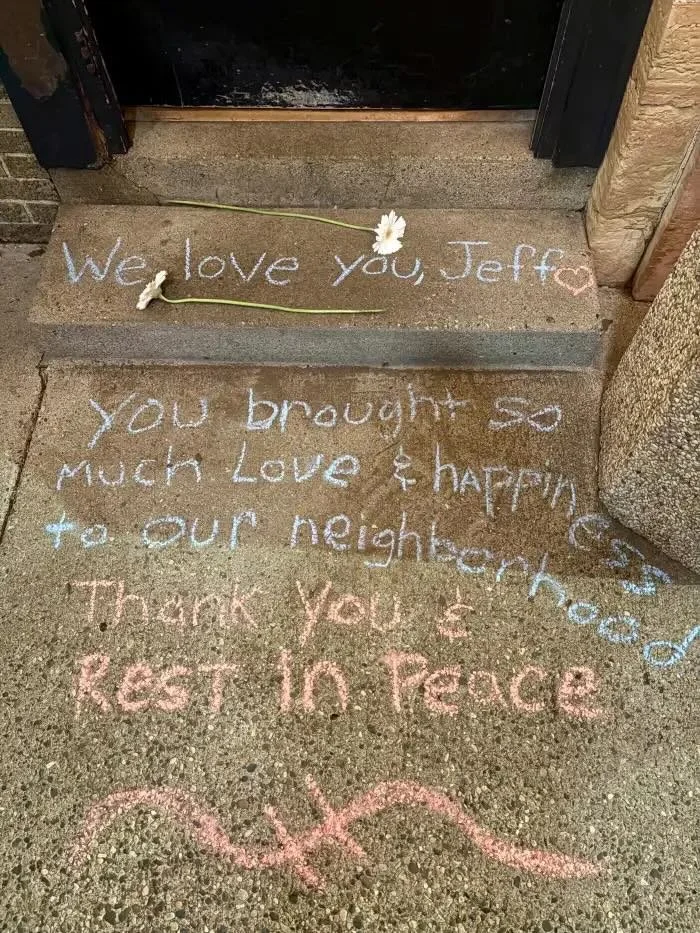 We love you, Jeff♡
You brought so
much Love & happiness
to our neighborhood
Thank You &
REST In Peace